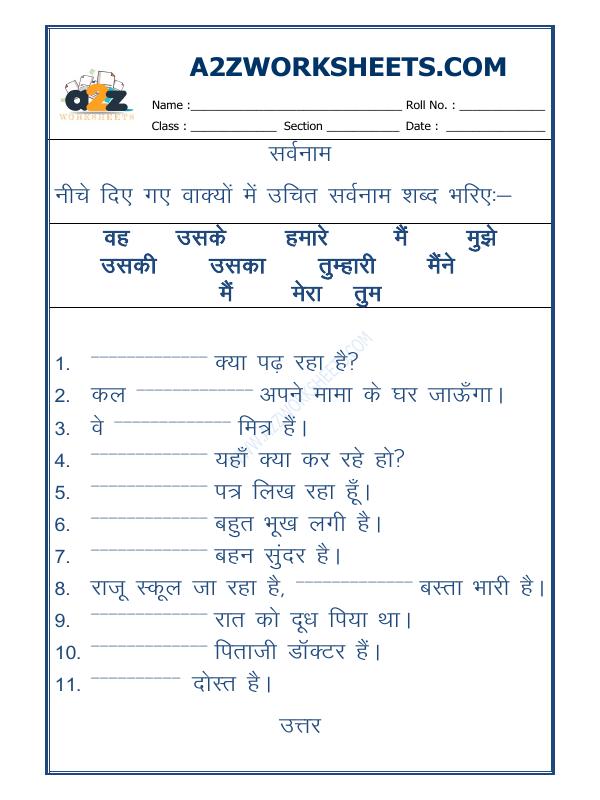 A2ZWORKSHEETS.COM
a2z
WORKSHEETS
Name :________________________________ Roll No. : _____________
Class : _____________ Section ___________ Date : _______________
सर्वनाम
नीचे दिए गए वाक्यों में उचित सर्वनाम शब्द भरिएः—
वह उसके हमारे मैं मुझे
उसकी उसका तुम्हारी मैंने
मैं मेरा तुम
1. _____________ क्या पढ़ रहा है?
2. कल _____________ अपने मामा के घर जाऊँगा।
3. वे _____________ मित्र हैं।
4. _____________ यहाँ क्या कर रहे हो?
5. _____________ पत्र लिख रहा हूँ।
6. _____________ बहुत भूख लगी है।
7. _____________ बहन सुंदर है।
8. राजू स्कूल जा रहा है, _____________ बस्ता भारी है।
9. _____________ रात को दूध पिया था।
10. _____________ पिताजी डॉक्टर हैं।
11. __________ दोस्त है।
उत्तर
WWW.A2ZWORKSHEETS.COM